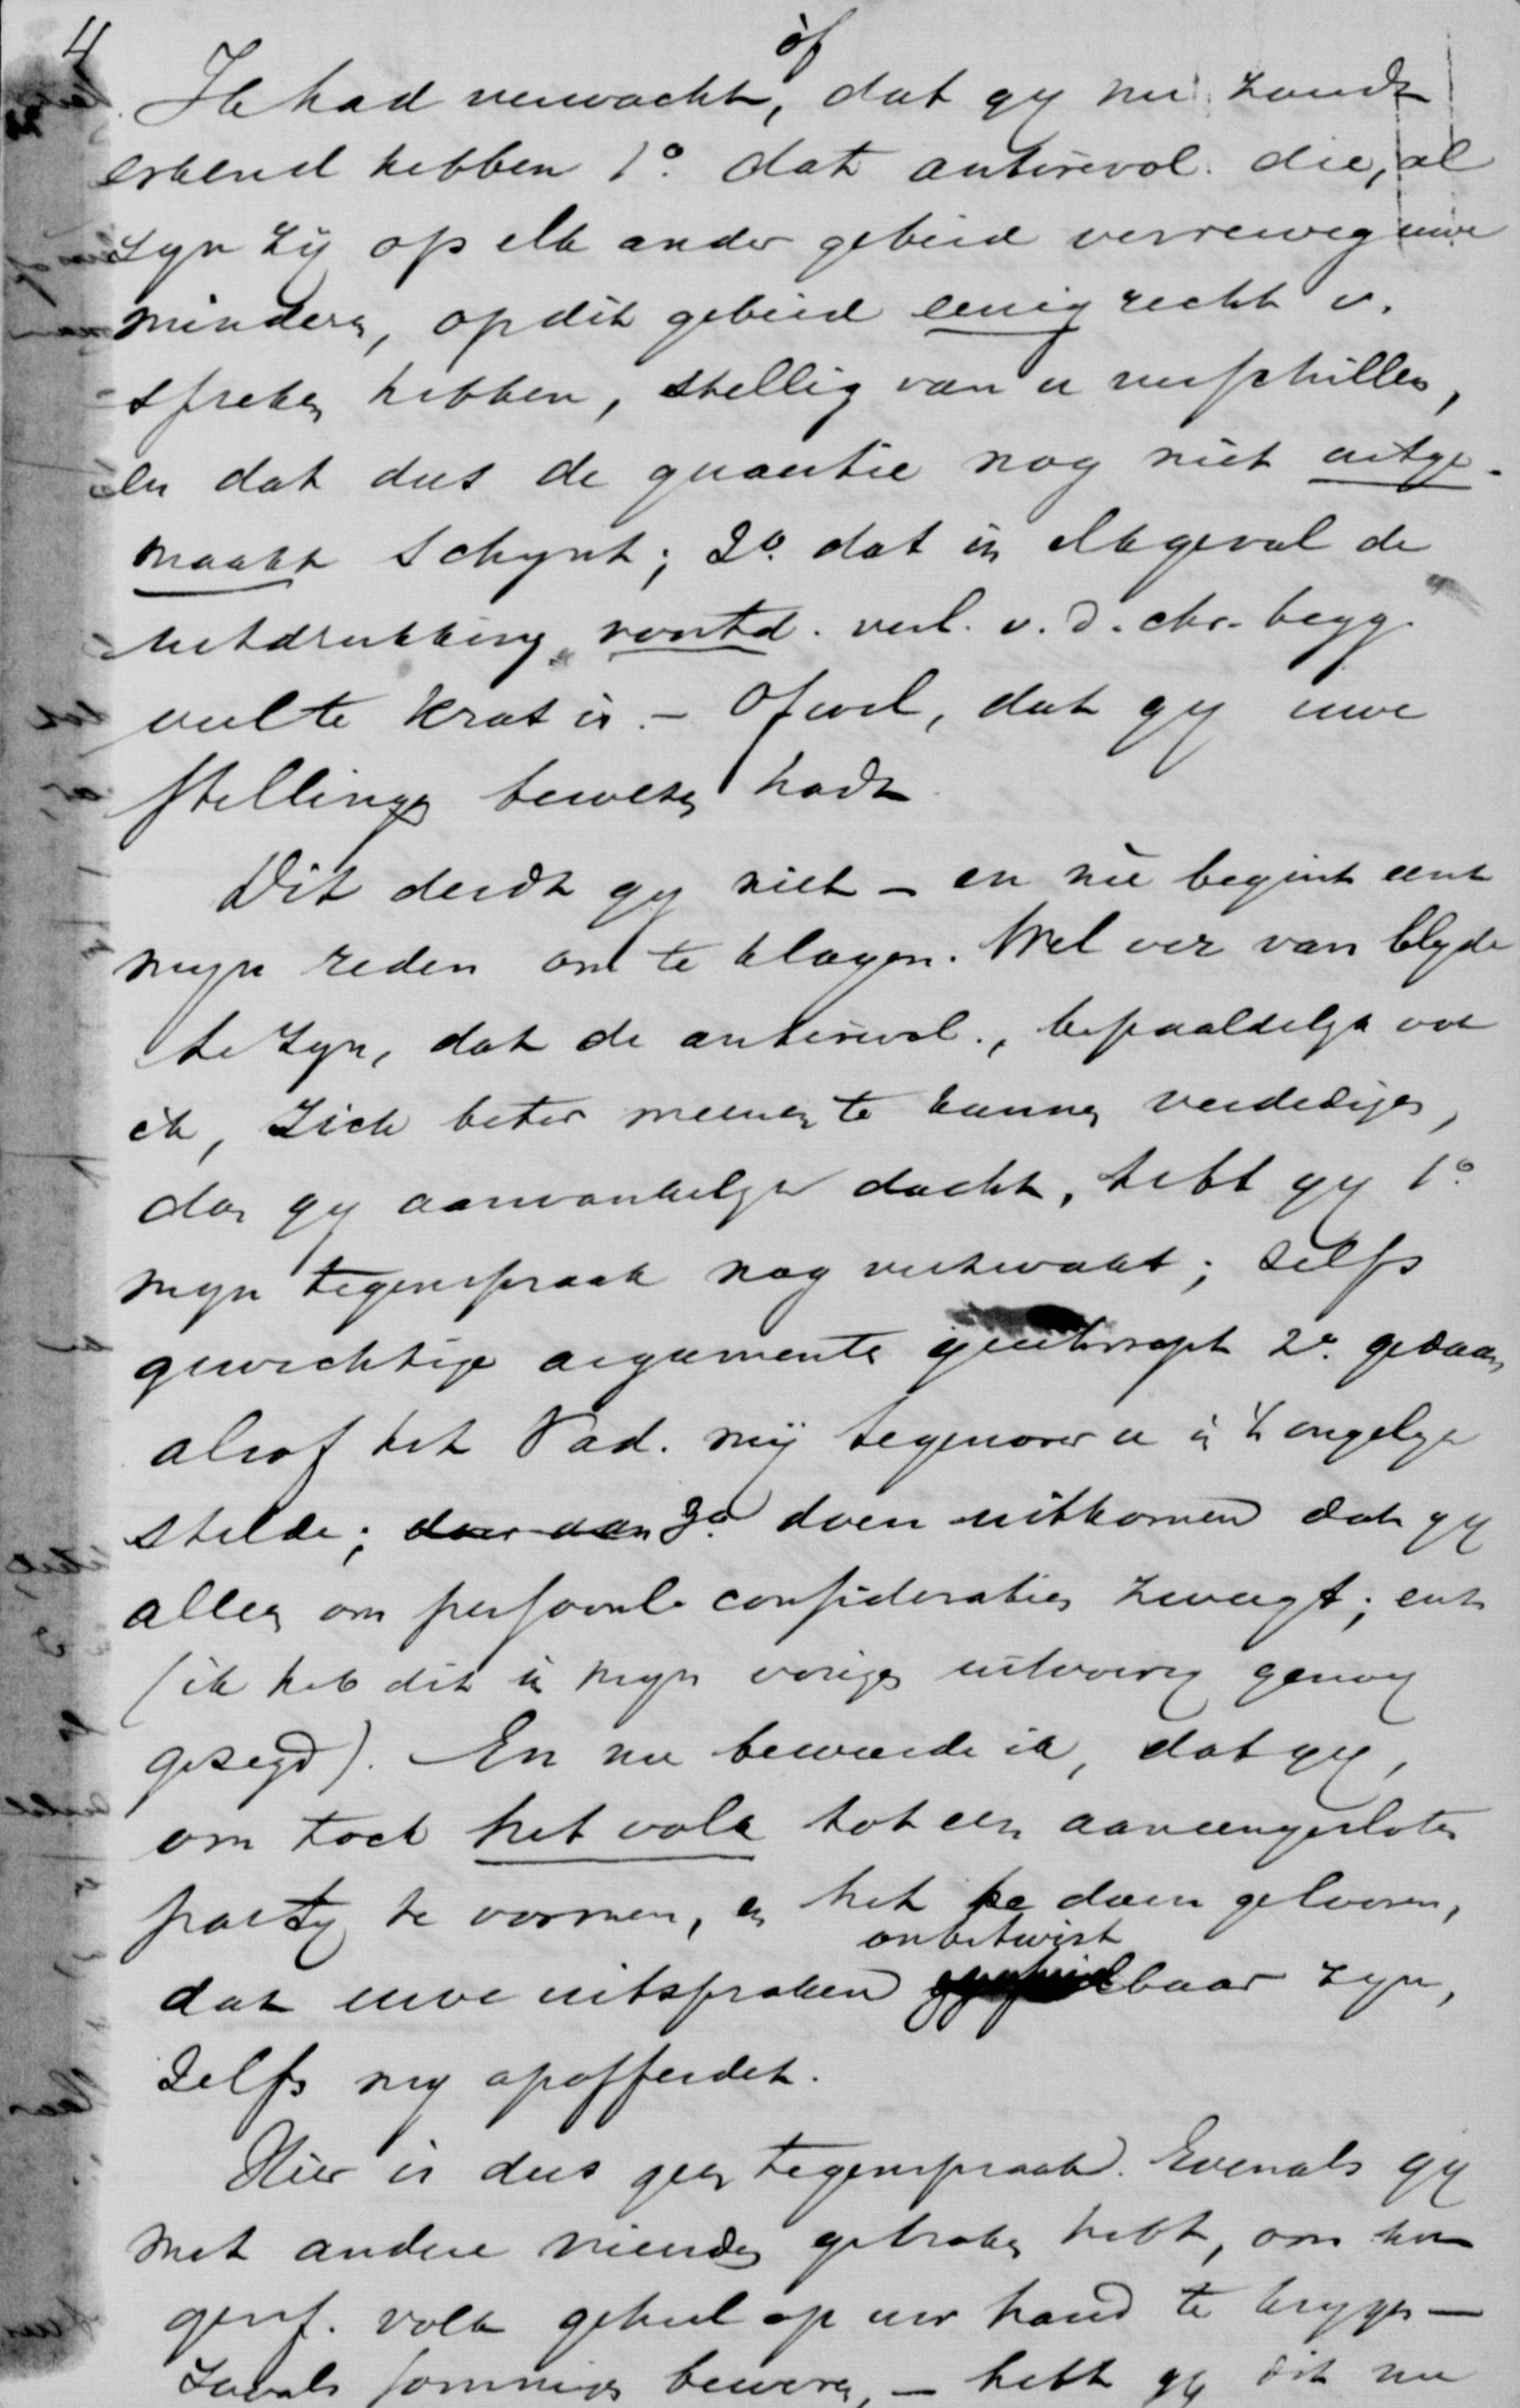 4
òf
Ik had verwacht, dat gy nu zoudt
erkend hebben 1o. dat antirevol. die, al
zyn zij op elk ander gebied verreweg uwe
minderen, op dit gebied eenig recht v.
spreken hebben, stellig van u verschillen,
en dat dus de quaestie nog niet uitge-
maakt schynt; 2o. dat in elk geval de
uitdrukking vontd. verl. v. d. chr. begg.
veel te kras is. – Ofwel, dat gy uwe
stellingen bewezen hadt.
Dit deedt gy niet – en nu begint eerst
myn reden om te klagen. Wel ver van blyde
te zyn, dat de antirevol., bepaaldelyk ook
ik, zich beter meenen te kunnen verdedigen,
dan gy aanvankelyk dacht, hebt gy 1o.
myn tegenspraak nog verzwakt; zelfs
gewichtige argumenten 2o. gedaan
alsof het Vad. mij tegenover u in 't ongelyk
stelde; daar aan 3o. doen uitkomen dat gy
alleen om persoonl. consideraties zweegt; enz
(ik heb dit in myn vorige uitvoerig genoeg
gezegd). En nu beweerde ik, dat gy,
om toch het volk tot een aaneengesloten
party te vormen, en het te doen gelooven,
onbetwist
dat uwe uitspraken baar zyn,
zelfs my opofferdet.
Hier is dus geen tegenspraak. Evenals gy
met andere vrienden gebroken hebt, om het
geref. volk geheel op uw hand te krygen –
zooals sommigen beweren, – hebt gy dit nu